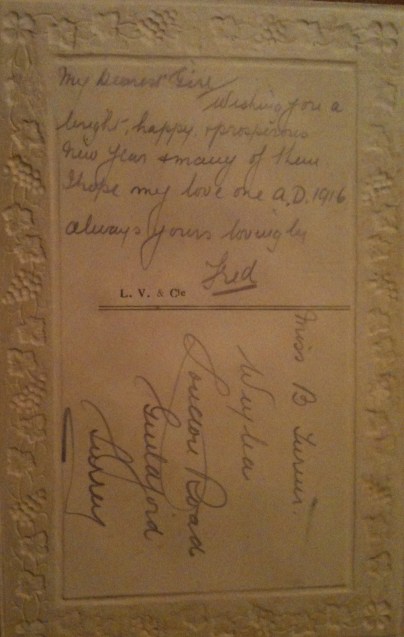 My Dearest Girl
Wishing you a
bright, happy, & prosperous
New Year & many of them.
I hope my love one A.D. 1916
always yours lovingly
Fred
L. V. & Cie
Miss B
London Road
Guildford
Surrey